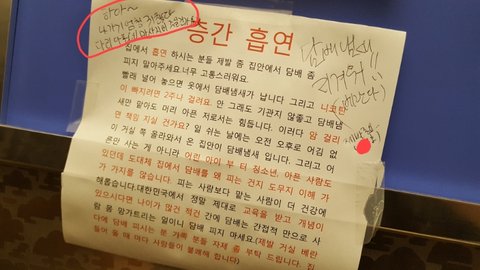 하아~
층간 흡연
담배냄새
지겨워!!
집에서 흡연 하시는 분들 제발 좀 집안에서 담배 좀
피지 말아주세요.너무 고통스러워요.
빨래 널어 놓으면 옷에서 담배냄새가 납니다 그리고 니코틴
이 빠지려면 2주나 걸려요. 안 그래도 기관지 않좋고 담배냄
새만 맡아도 머리 아픈 저로서는 힘듭니다. 이러다 암 걸리
면 책임 지실 건가요? 일 쉬는 날에는 오전 오후로 어김 없
이 거실 쪽 올라와서 온 집안이 담배냄새 입니다. 그리고 어
른만 사는 게 아니라 어린 아이 부 터 청소년, 아픈 사람도
있던데 도대체 집에서 담배를 왜 피는 건지 도무지 이해 가
가 지를 않습니다. 피는 사람보다 맡는 사람이 더 건강에
해롭습니다.대한민국에서 정말 제대로 교육을 받고 개념이
있으시다면 나이가 많건 적건 간에 담배는 간접적 만으로 사
람 몸 망가트리는 일이니 담배 피지 마세요.(제발 거실 베란
다에 담배 피시는 분 가족 분들 자제 좀 부탁 드립니다. 집
들어 올 때 마다 사람들이 불쾌해 합니다)